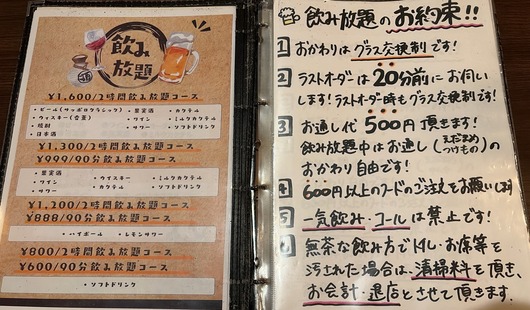 飲み
放題
酒
¥1,600/2時間飲み放題コース
・ビール(サッポロクラシック) ・果実酒 ・カクテル
・ウィスキー(香薫) ・ワイン ・ミルクカクテル
・焼酎 ・サワー ・ソフトドリンク
・日本酒
¥1,300/2時間飲み放題コース
¥999/90分飲み放題コース
・果実酒 ・ウイスキー ・ミルクカクテル
・ワイン ・カクテル ・ソフトドリンク
・サワー
¥1,200/2時間飲み放題コース
¥888/90分飲み放題コース
・ハイボール ・レモンサワー
¥800/2時間飲み放題コース
¥600/90分飲み放題コース
・ソフトドリンク
飲み放題のお約束!!
1 おかわりはグラス交換制です!
2 ラストオーダーは20分前にお伺い
します!ラストオーダー時もグラス交換制です!
3 お通し代500円頂きます!
飲み放題中はお通し(えだまめ つけもの)の
おかわり自由です!
4 600円以上のフードのご注文をお願いします
5 一気飲み・コールは禁止です!
6 無茶な飲み方でトイレ・お席等を
汚された場合は、清掃料を頂き、
お会計・退店とさせて頂きます。